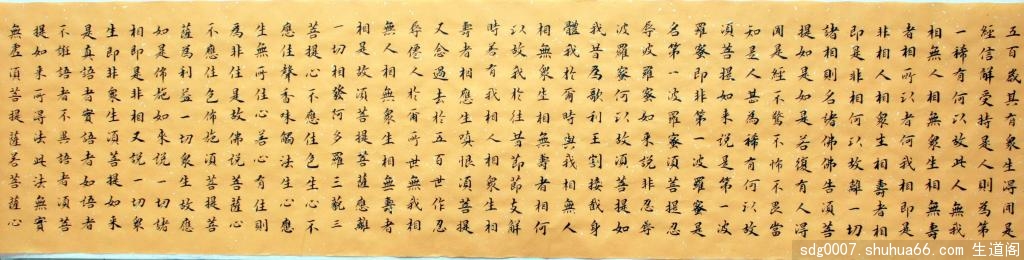 五百歲其有眾生得聞是
經信解受持是人則為第
一稀有何以故此人無我
相無人相無眾生相無壽
者相所以者何我相即是
非相人相眾生相壽者相
即是非相何以故離一切
諸相則名諸佛佛告須菩
提如是如是若復有人得
聞是經不驚不怖不畏當
知是人甚為稀有何以故
須菩提如來說是第一波
羅蜜即非第一波羅蜜是
名第一波羅蜜須菩提忍
辱波羅蜜如來說非忍辱
波羅蜜何以故須菩提如
我昔為歌利王割截我身
體我於爾時無我相無人
相無眾生相無壽者相何
以故我於往昔節節支解
時若有我相人相眾生相
壽者相應生嗔恨須菩提
又念過去於五百世作忍
辱僊人於爾所世無我相
無人相無眾生相無壽者
相是故須菩提菩薩應離
一切相發阿多羅三藐三
菩提心不應住色生心不
應住聲香味觸法生心應
生無所住心若心有住則
為非住是故佛說菩薩心
不應住色佈施須菩提菩
薩為利益一切眾生故應
如是佈施如來說一切諸
相即是非相又說一切眾
生即非眾生須菩提如來
是真語者實語者如語者
不誑語者不異語者須菩
提如來所得法此法無實
無虛須菩提菩薩心
sdg0007.shuhua66.com 生道阁